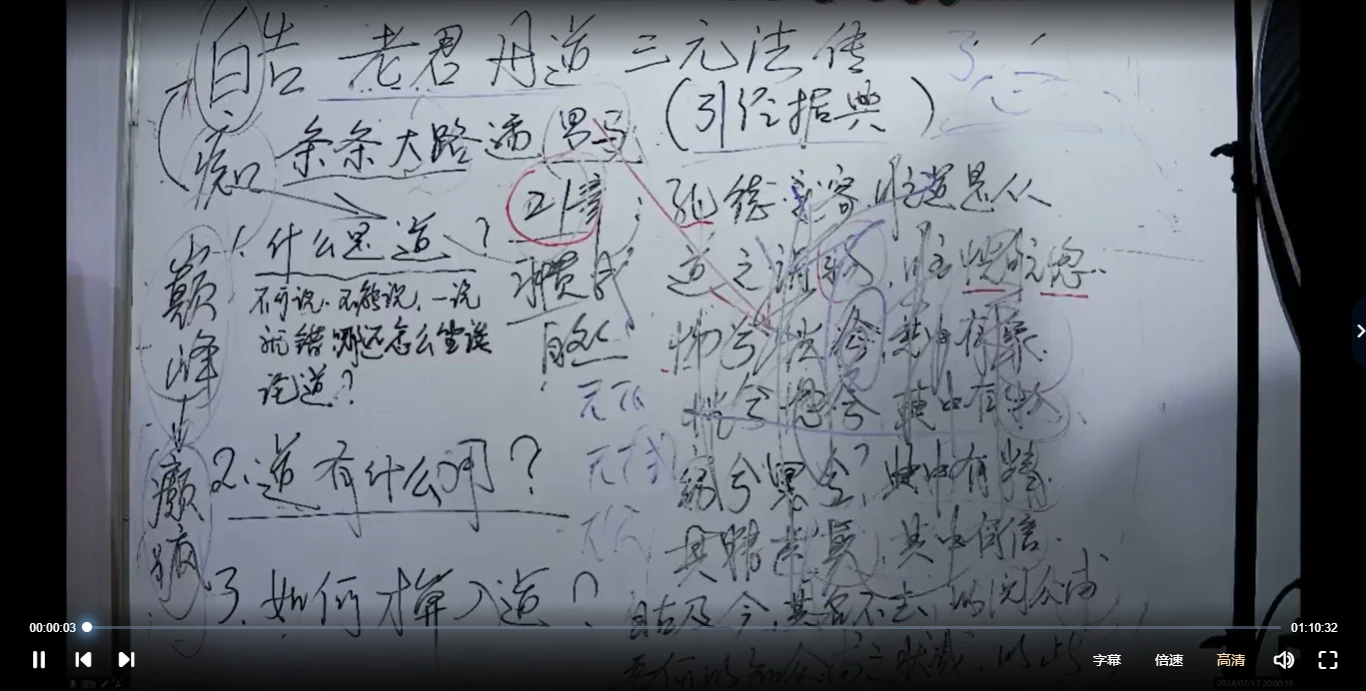 自告 老君丹道 三元法传
痴 条条大路通罗马 (引经据典)
1. 什么是道?
不可说、不能说，一说
就错，那还怎么坐谈
论道?
自然
2. 道有什么用?
3. 如何才算入道?
巅峰
癫疯
孔德之容，唯道是从
道之为物，唯恍唯惚.
惚兮恍兮，其中有象.
恍兮惚兮，其中有物.
窈兮冥兮，其中有精.
其精甚真，其中有信.
自古及今，其名不去，以阅众甫
吾何以知众甫之状哉，以此
00:00:03
01:10:32
字幕 倍速 高清
2024/07/17 20:00:19